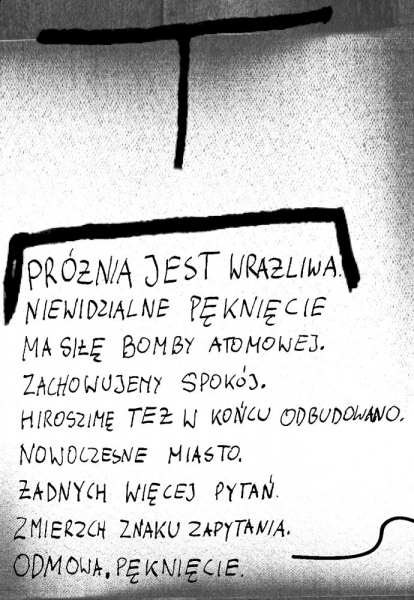 PRÓŻNIA JEST WRAŻLIWA.
NIEWIDZIALNE PĘKNIĘCIE
MA SIŁĘ BOMBY ATOMOWEJ.
ZACHOWUJEMY SPOKÓJ.
HIROSZIMĘ TEŻ W KOŃCU ODBUDOWANO.
NOWOCZESNE MIASTO.
ŻADNYCH WIĘCEJ PYTAŃ.
ZMIERZCH ZNAKU ZAPYTANIA.
ODMOWA, PĘKNIĘCIE.